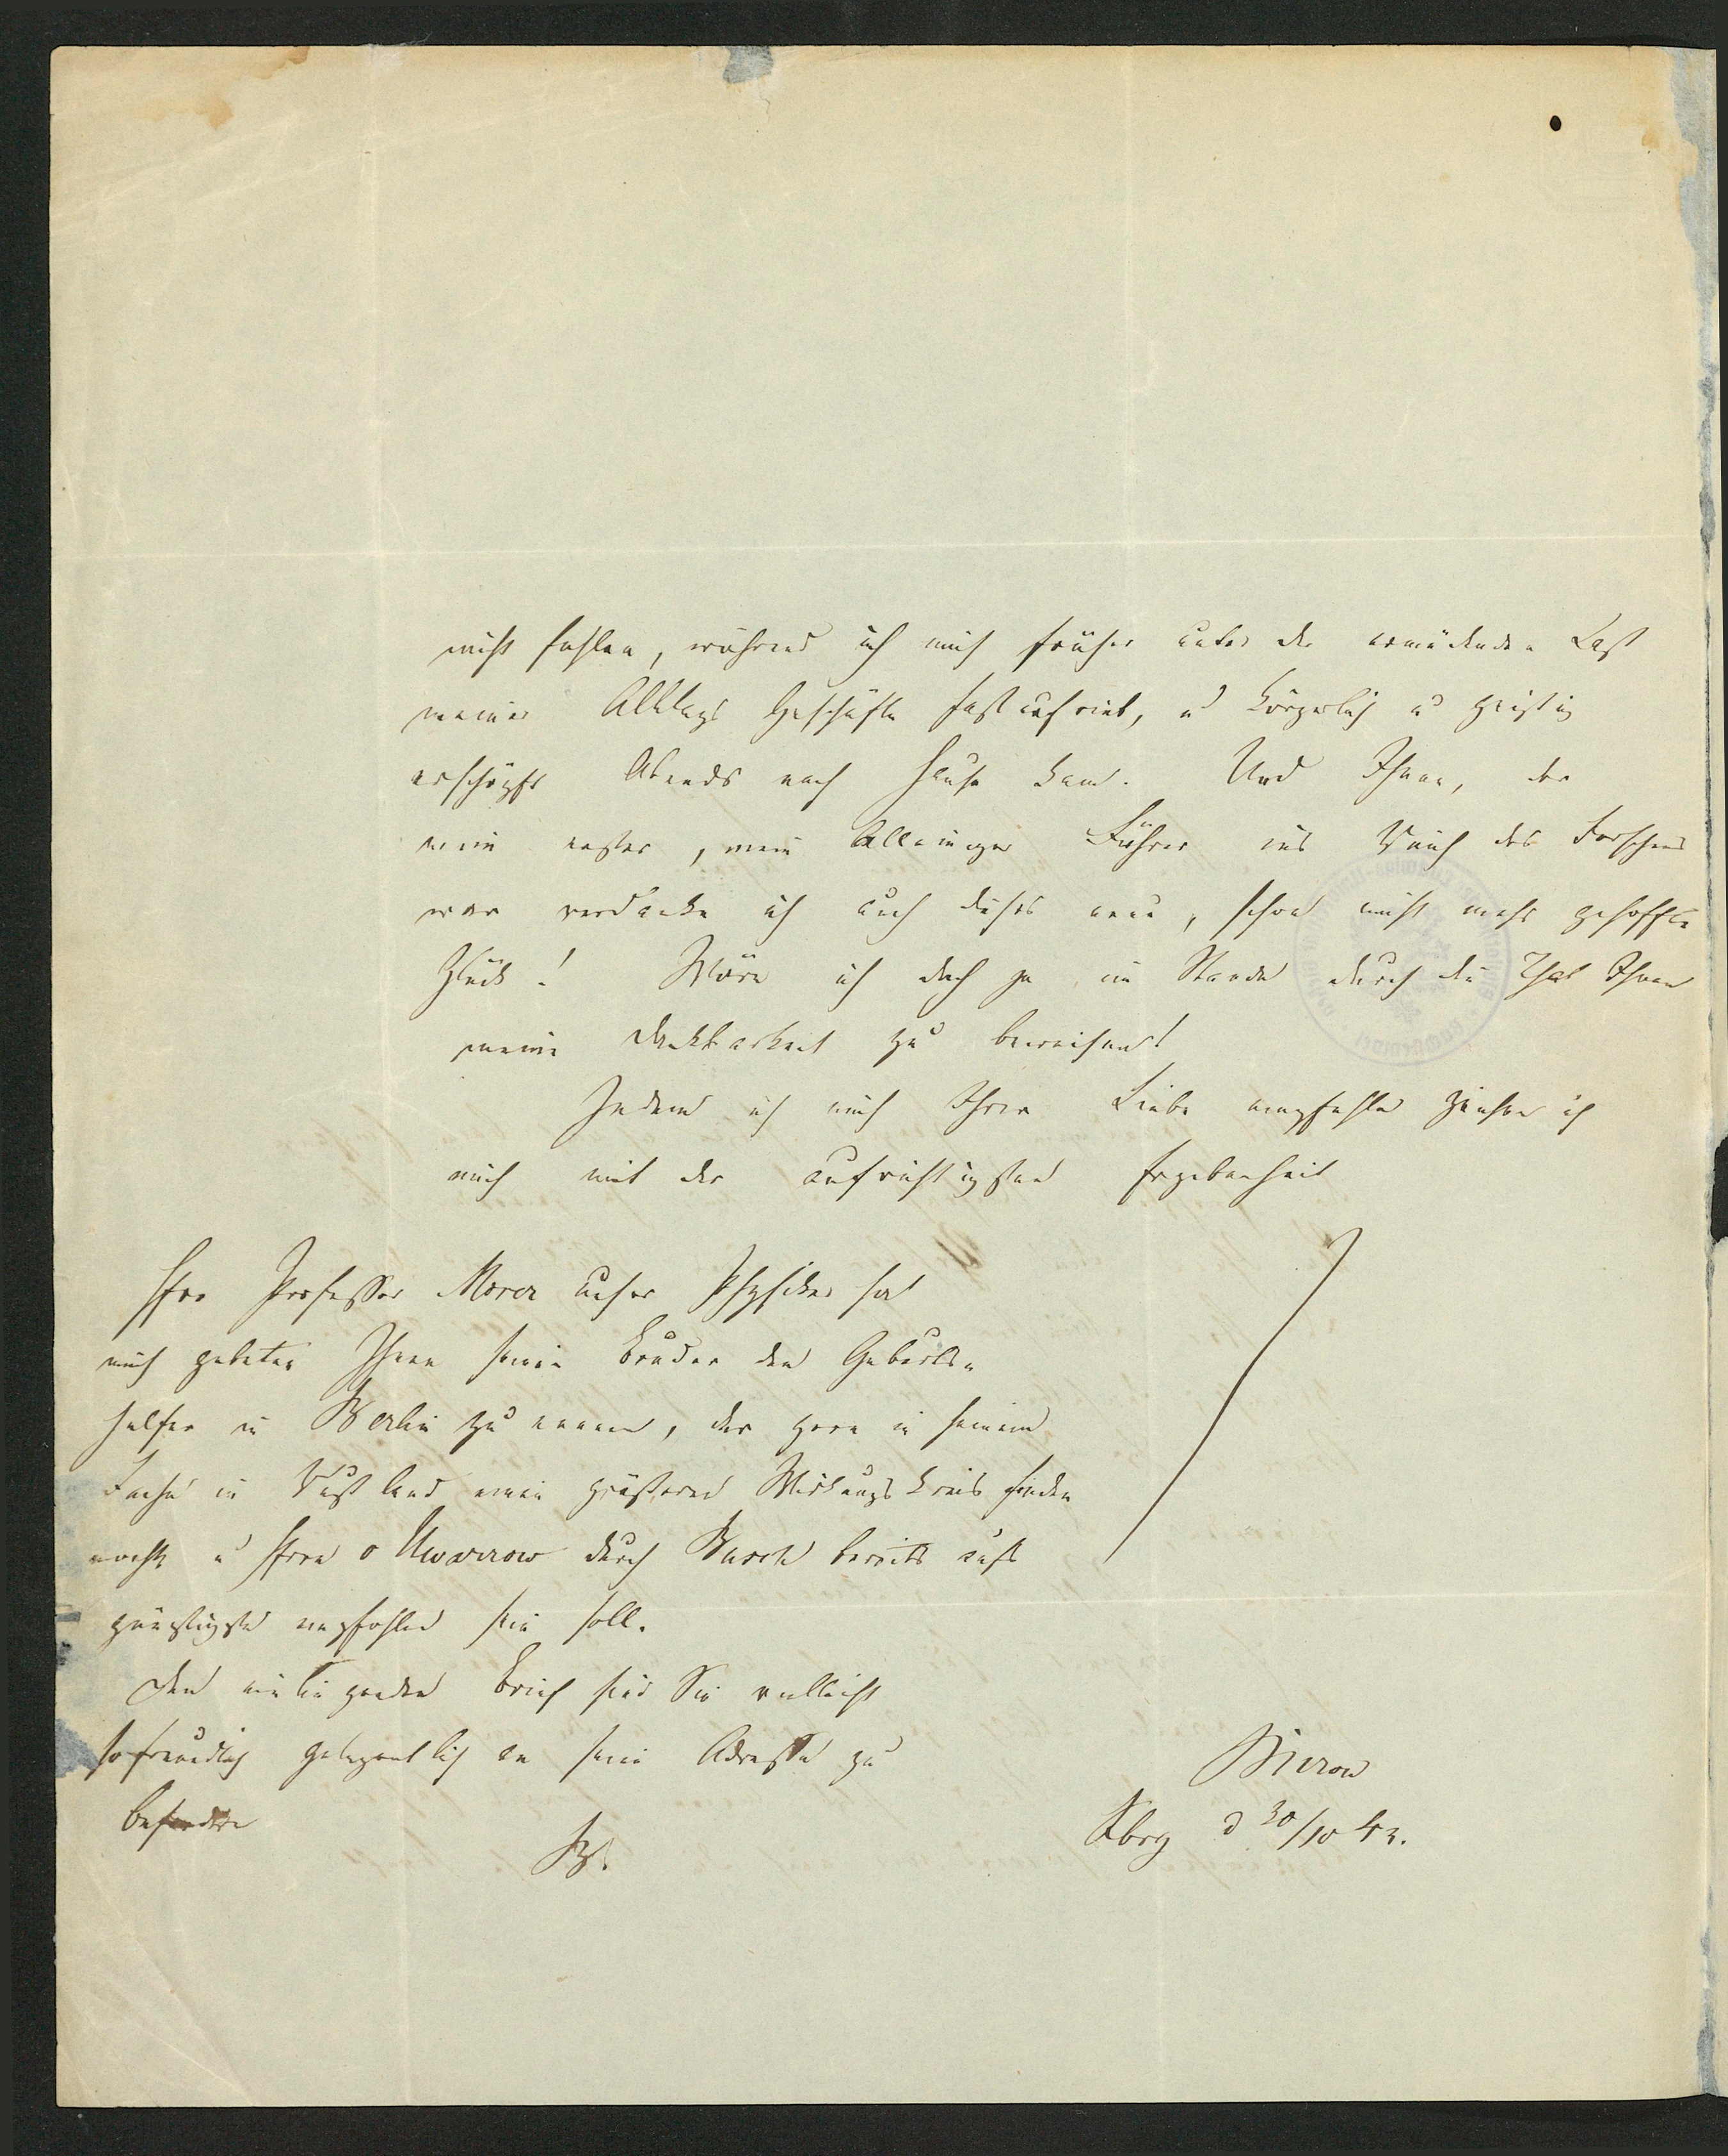 nicht fehlen, während ich mich früher unter der ermüdenden Last
meiner Alltags Geschäfte fast aufrieb, u körperlich u geistig
erschöpft Abends nach Hause kam. Und Ihnen, der
mein erster, mein Alleiniger Führer ins Reich des Forschens
war verdanke ich auch dieses neue, schon nicht mehr gehoffte
Glück! Wäre ich doch je im Stande durch die That Ihnen
meine Dankbarkeit zu beweisen!
Indem ich mich Ihrer Liebe empfehle zeichne ich
mich mit der aufrichtigsten Ergebenheit
Herr Professor Moser unser Physiker hat
mich gebeten Ihnen seinen Bruder den Geburts-
helfer in Berlin zu nennen, der gern in seinem
Fache in Rußland einen größeren Wirkungskreis finden
möchte u Herrn v Uwarrow durch Busch bereits aufs
günstigste empfohlen sein soll.
Den einliegenden Brief sind Sie vielleicht
so freundlich gelegentlich an seine Adresse zu
befördern
Kbrg d 30/10 42.